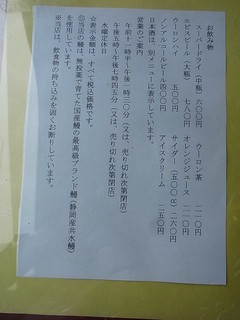 お飲み物
スーパードライ（中瓶）六〇〇円　ウーロン茶　二一〇円
エビスビール（大瓶）七八〇円　オレンジジュース　二一〇円
ウーロンハイ　五〇〇円　サイダー（五〇〇㎖）二六〇円
ノンアルコールビール四〇〇円　アイスクリーム　二五〇円
日本酒は、別メニューに表示しています。
営業のご案内
午前十一時半～午後一時三〇分（又は、売り切れ次第閉店）
午後五時～午後七時四五分（又は、売り切れ次第閉店）
水曜定休日
☆表示金額は、すべて税込価格です。
◎当店の鰻は、無投薬で育てた国産鰻の最高級ブランド鰻（静岡産共水鰻）
を使用しています。
※当店は、飲食物の持ち込みを固くお断りしています。